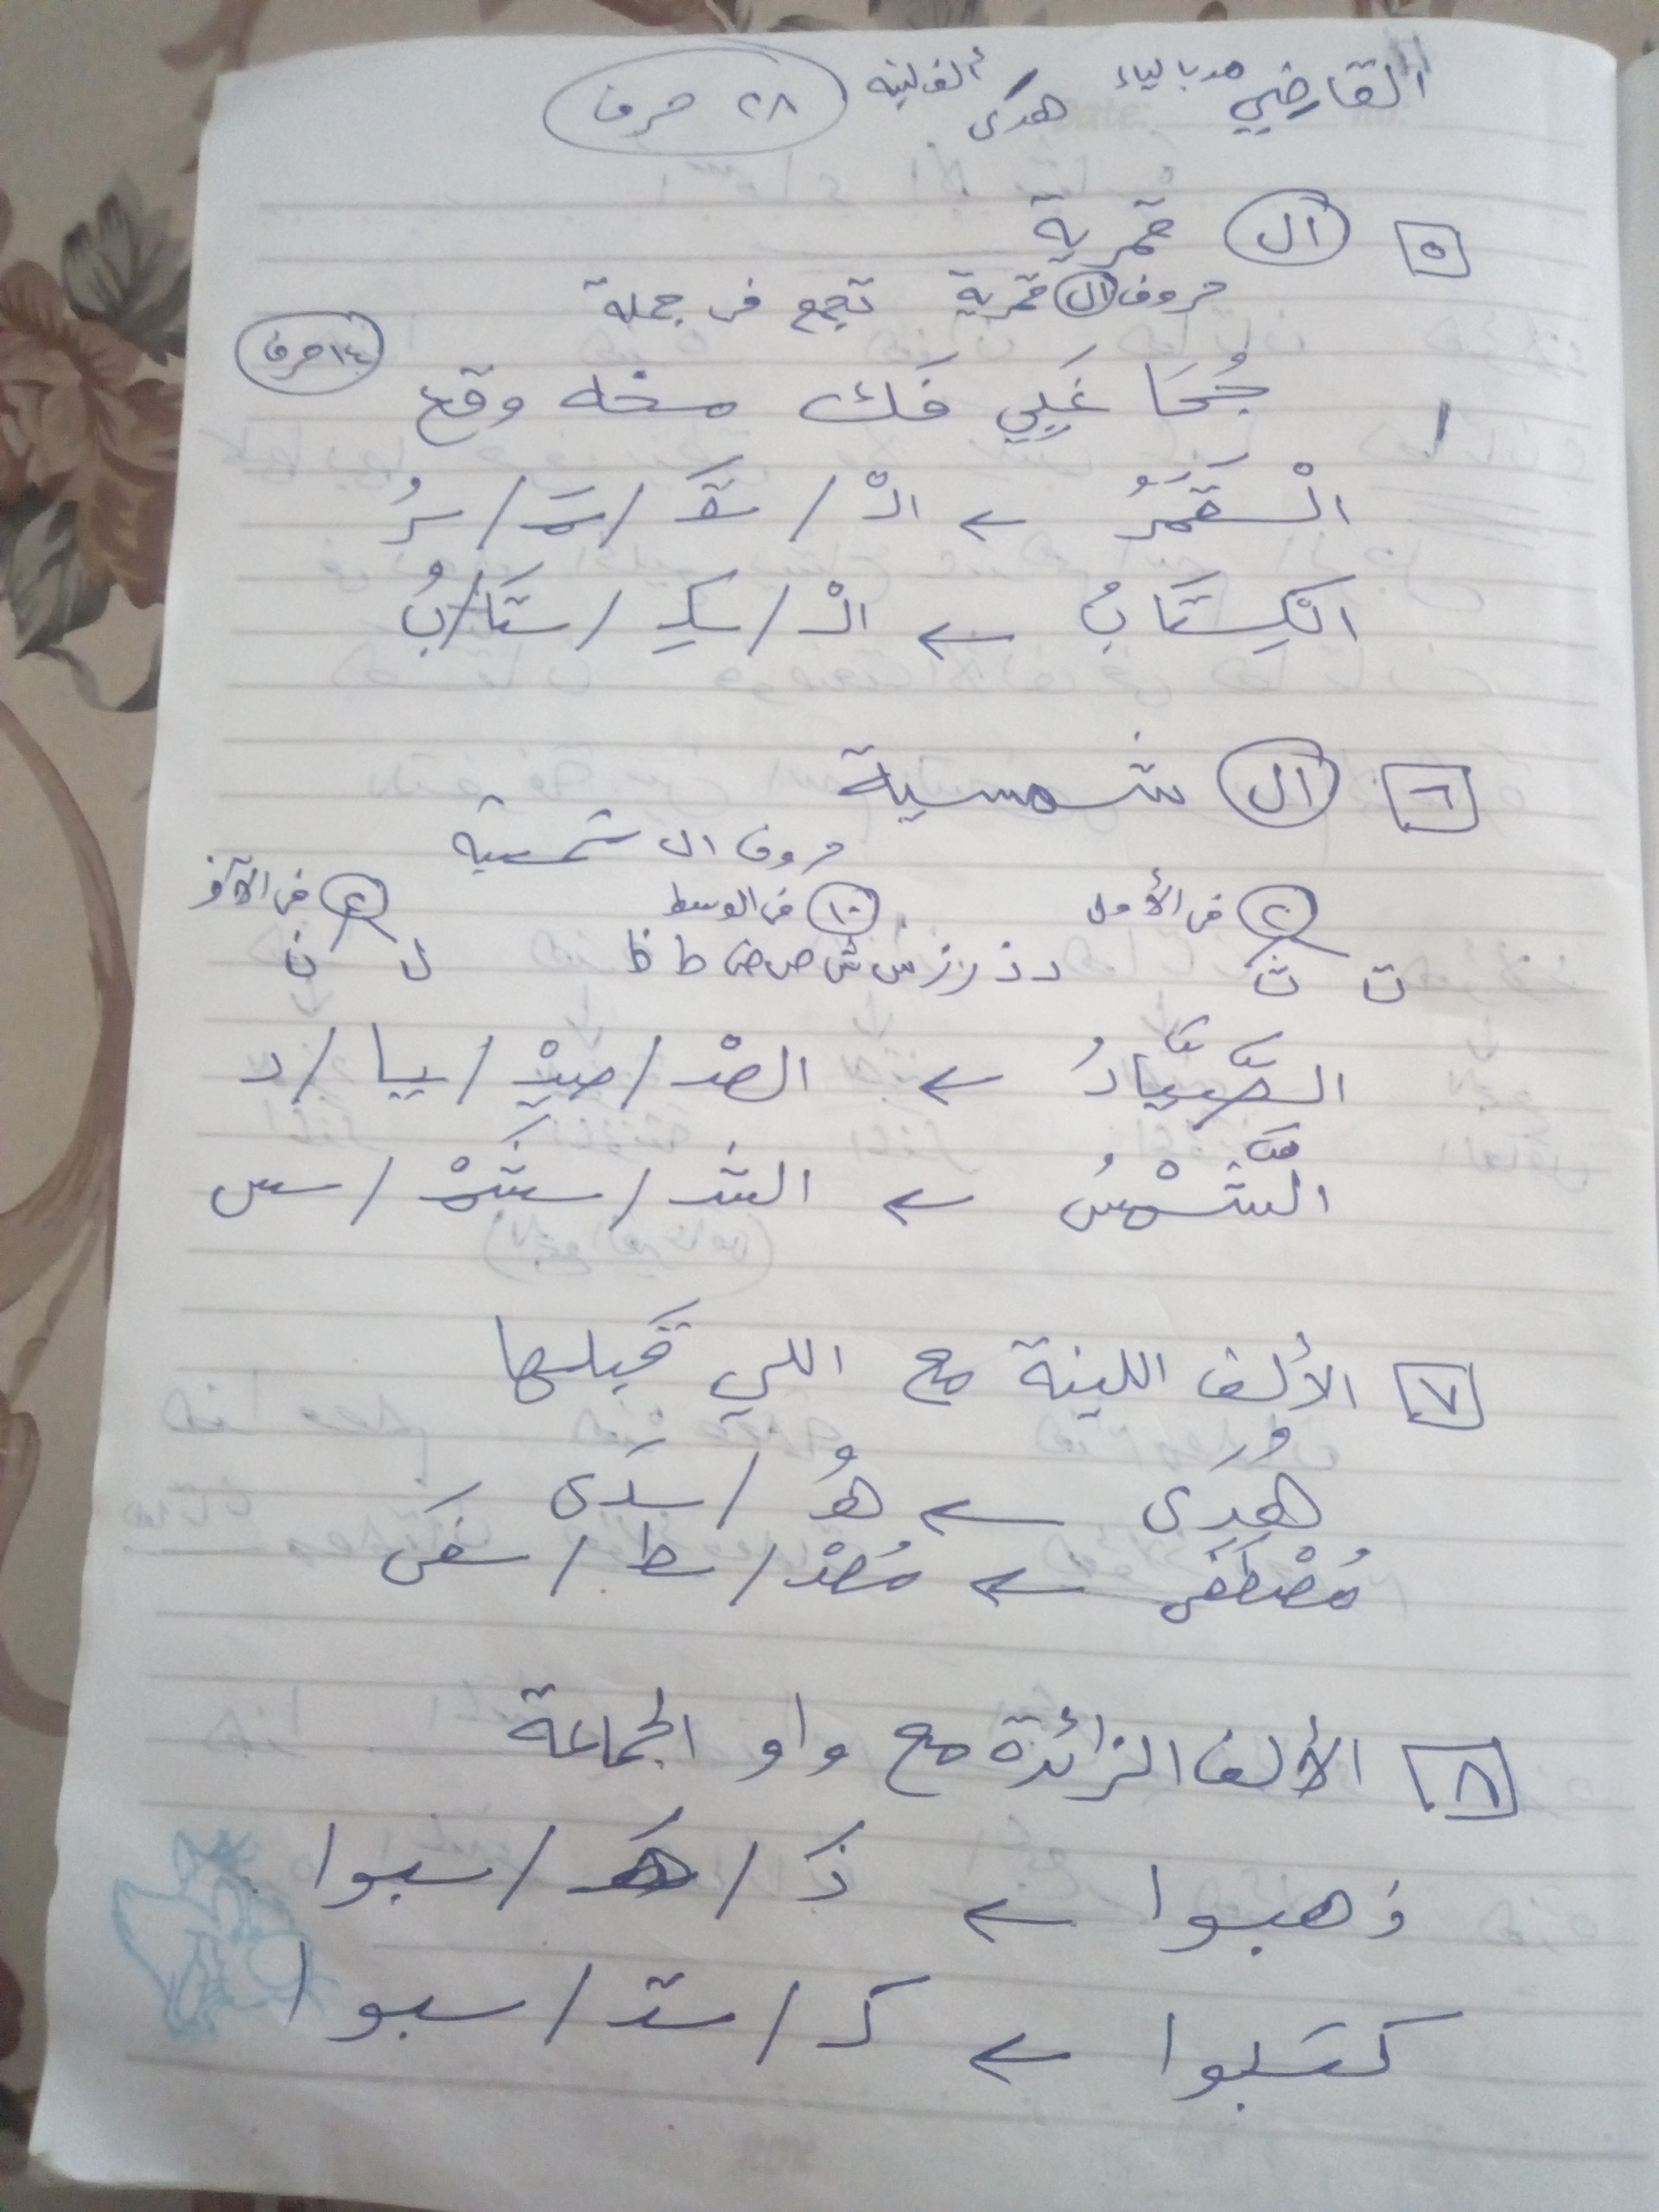 القاضي مد بالياء هدَى ألف لينه ٢٨ حرف
٥ ال قمرية
حروف ال قمرية تجمع فى جملة
١٤ حرف
جُحَا غَبِي فَك مخه وقع
الْقَمَرُ ← الْ / ـقَـ / ـمَـ / ـرُ
الْكِتَابُ ← الْ / ـكِـ / ـتَا / بُ
٦ ال شمسية
حروف ال شمسية
٢ فى الأول ١٠ فى الوسط ٢ فى الآخر
ت ث د ذ ر ز س ش ص ض ط ظ ل ن
الصَّيَّادُ ← الصْ / صَيْ / يا / د
الشَّمْسُ ← الشـ / شَمْ / س
٧ الألف اللينة مع اللي قبلها
هُدَى ← هُ / ـدَى
مُصْطَفَى ← مُصْ / ـطـ / ـفَى
٨ الألف الزائدة مع واو الجماعة
ذهبوا ← ذَ / هَـ / ـبوا
كتبوا ← كـ / ـتـ / ـبوا